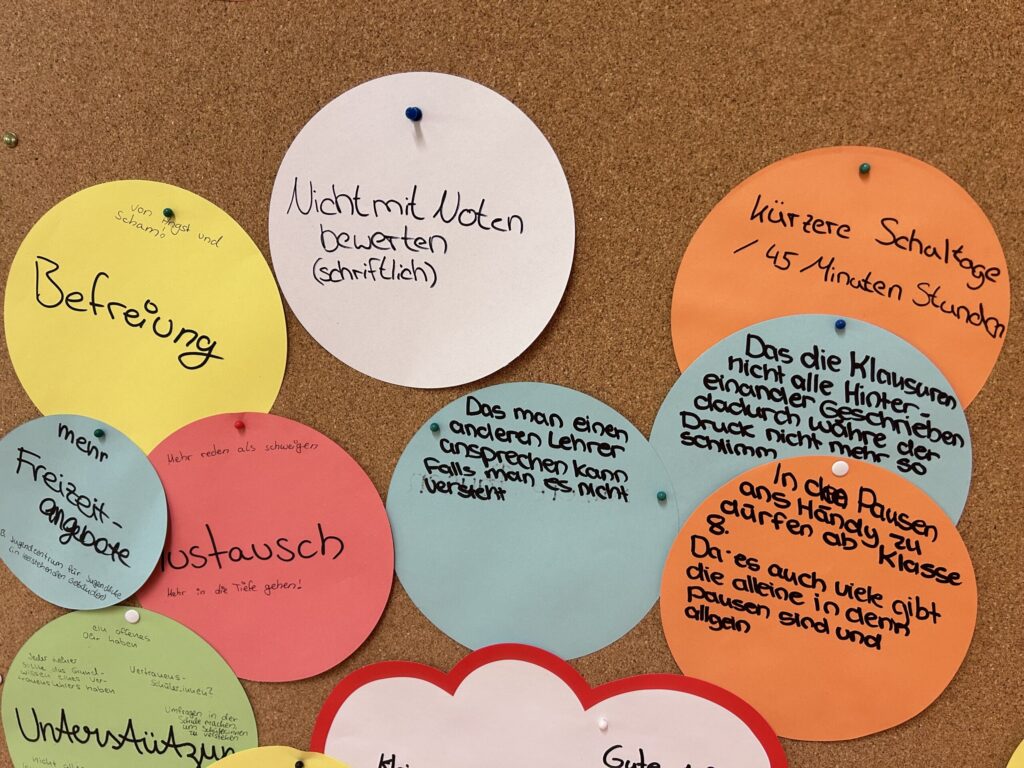 Nicht mit Noten
bewerten
(schriftlich)
Kürzere Schaltage
/ 45 Minuten Stunden
von Angst und
Scham!
Befreiung
Das die Klausuren
nicht alle Hinter-
einander Geschrieben
dadurch währe der
Druck nicht mehr so
schlimm
Das man einen
anderen Lehrer
ansprechen kann
Falls man es nicht
versteht
mehr
Freizeit-
angebote
Jugendzentrum für Jugendliche
(in leerstehenden Gebäuden)
Mehr reden als schweigen
Austausch
Mehr in die Tiefe gehen!
In den Pausen
ans Handy zu
dürfen ab Klasse
8.
Da es auch viele gibt
die alleine in denn
Pausen sind und
allgein
ein offenes
Ohr haben
Jeder Lehrer
sollte das Grund-
wissen eines Ver-
trauenslehrers haben
Vertrauens-
schüler:innen?
Umfragen in der
Schule machen,
um Schüler:innen
zu verstehen
Unterstützun
nicht alle
Gute